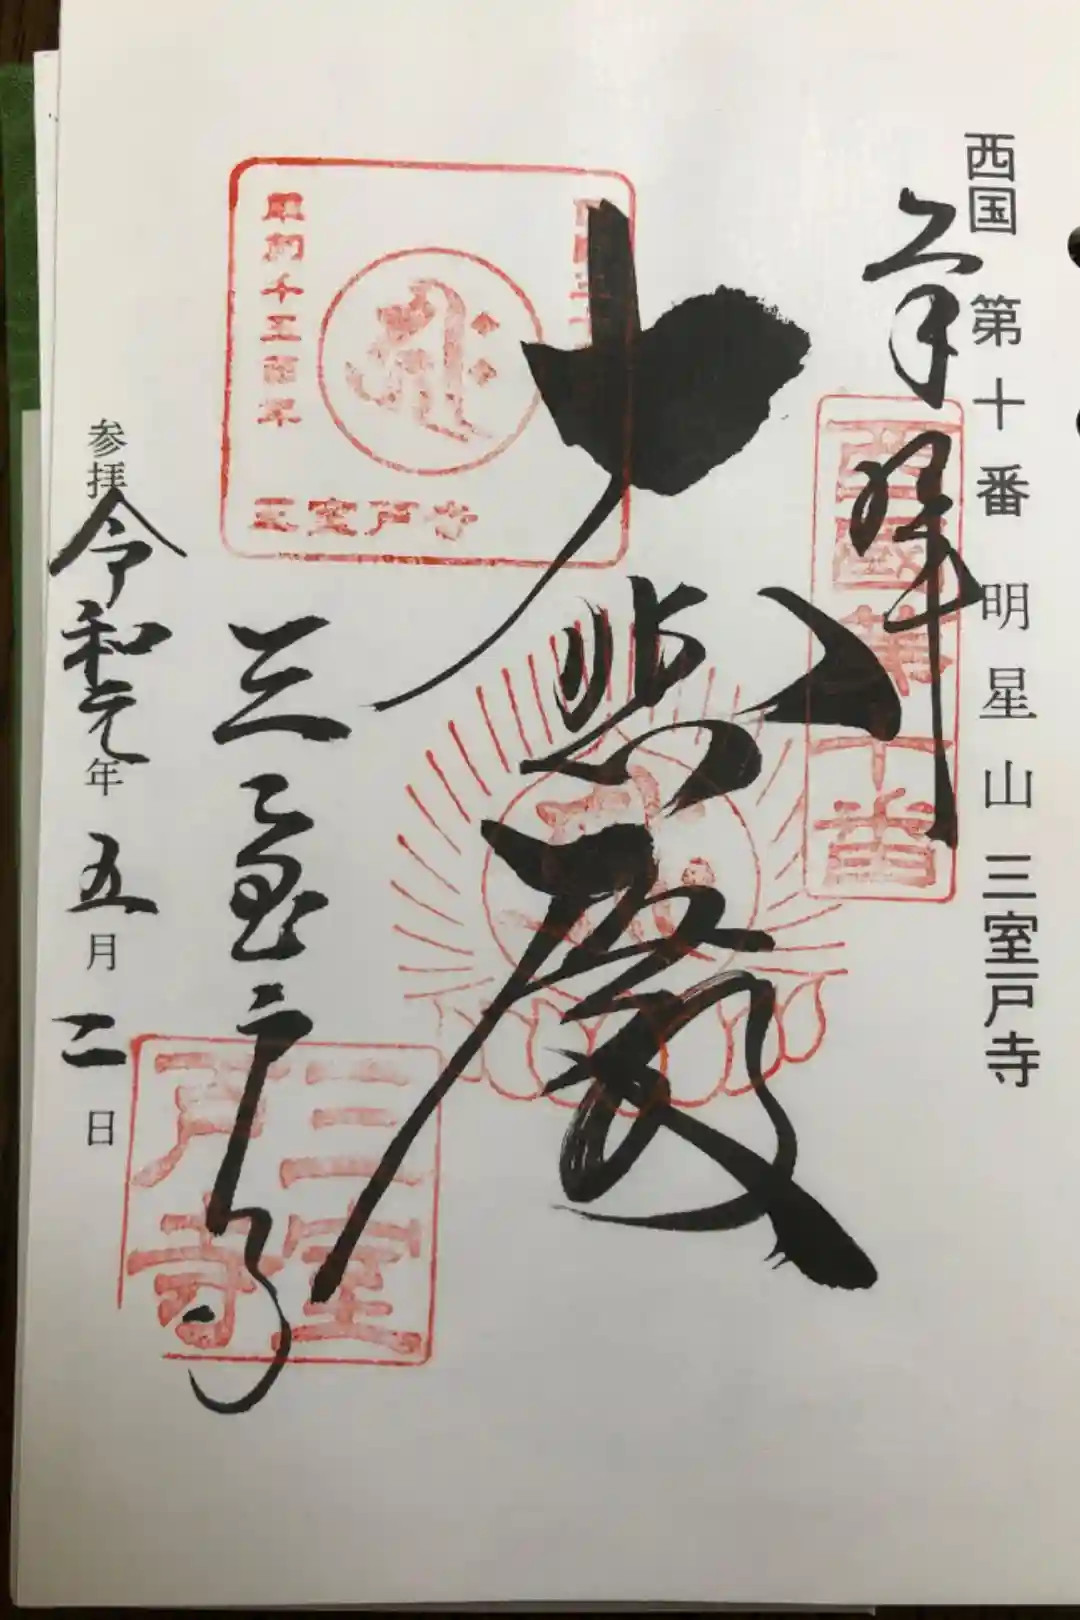 西国 第十番 明星山 三室戸寺
奉拝
西國第十番
大悲殿
三室戸寺
参拝 令和元年 五月 二日
開創千三百年
三室戸寺
三室戸寺